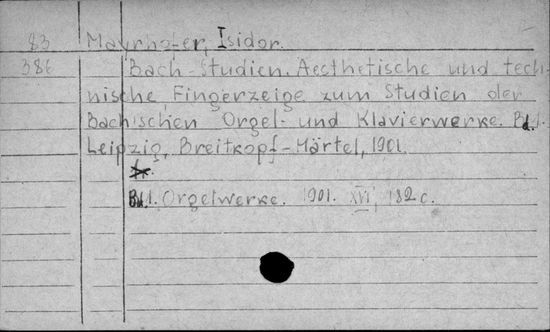 83 Mayrhofer, Isidor.
386 Bach-Studien. Aesthetische und tech-
nische Fingerzeige zum Studien der
Bachischen Orgel- und Klavierwerke. Bd. 1.
Leipzig, Breitkopf-Härtel, 1901.
Bd. 1. Orgelwerke. 1901. XVI, 182 c.